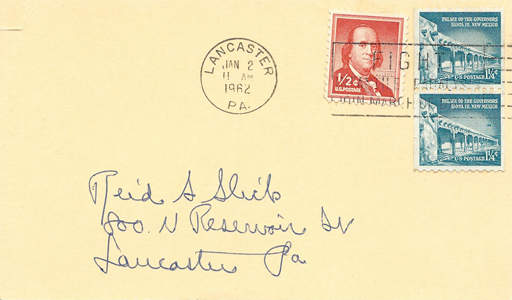 LANCASTER
JAN 2
11 AM
1962
PA.
1/2¢
U.S. POSTAGE
PALACE OF THE GOVERNORS
SANTA FE, NEW MEXICO
U.S. POSTAGE 1¼¢
FIGHT
JOIN MARCH
PALACE OF THE GOVERNORS
SANTA FE, NEW MEXICO
U.S. POSTAGE 1¼¢
Reid S Slick
800 N Reservoir St
Lancaster Pa